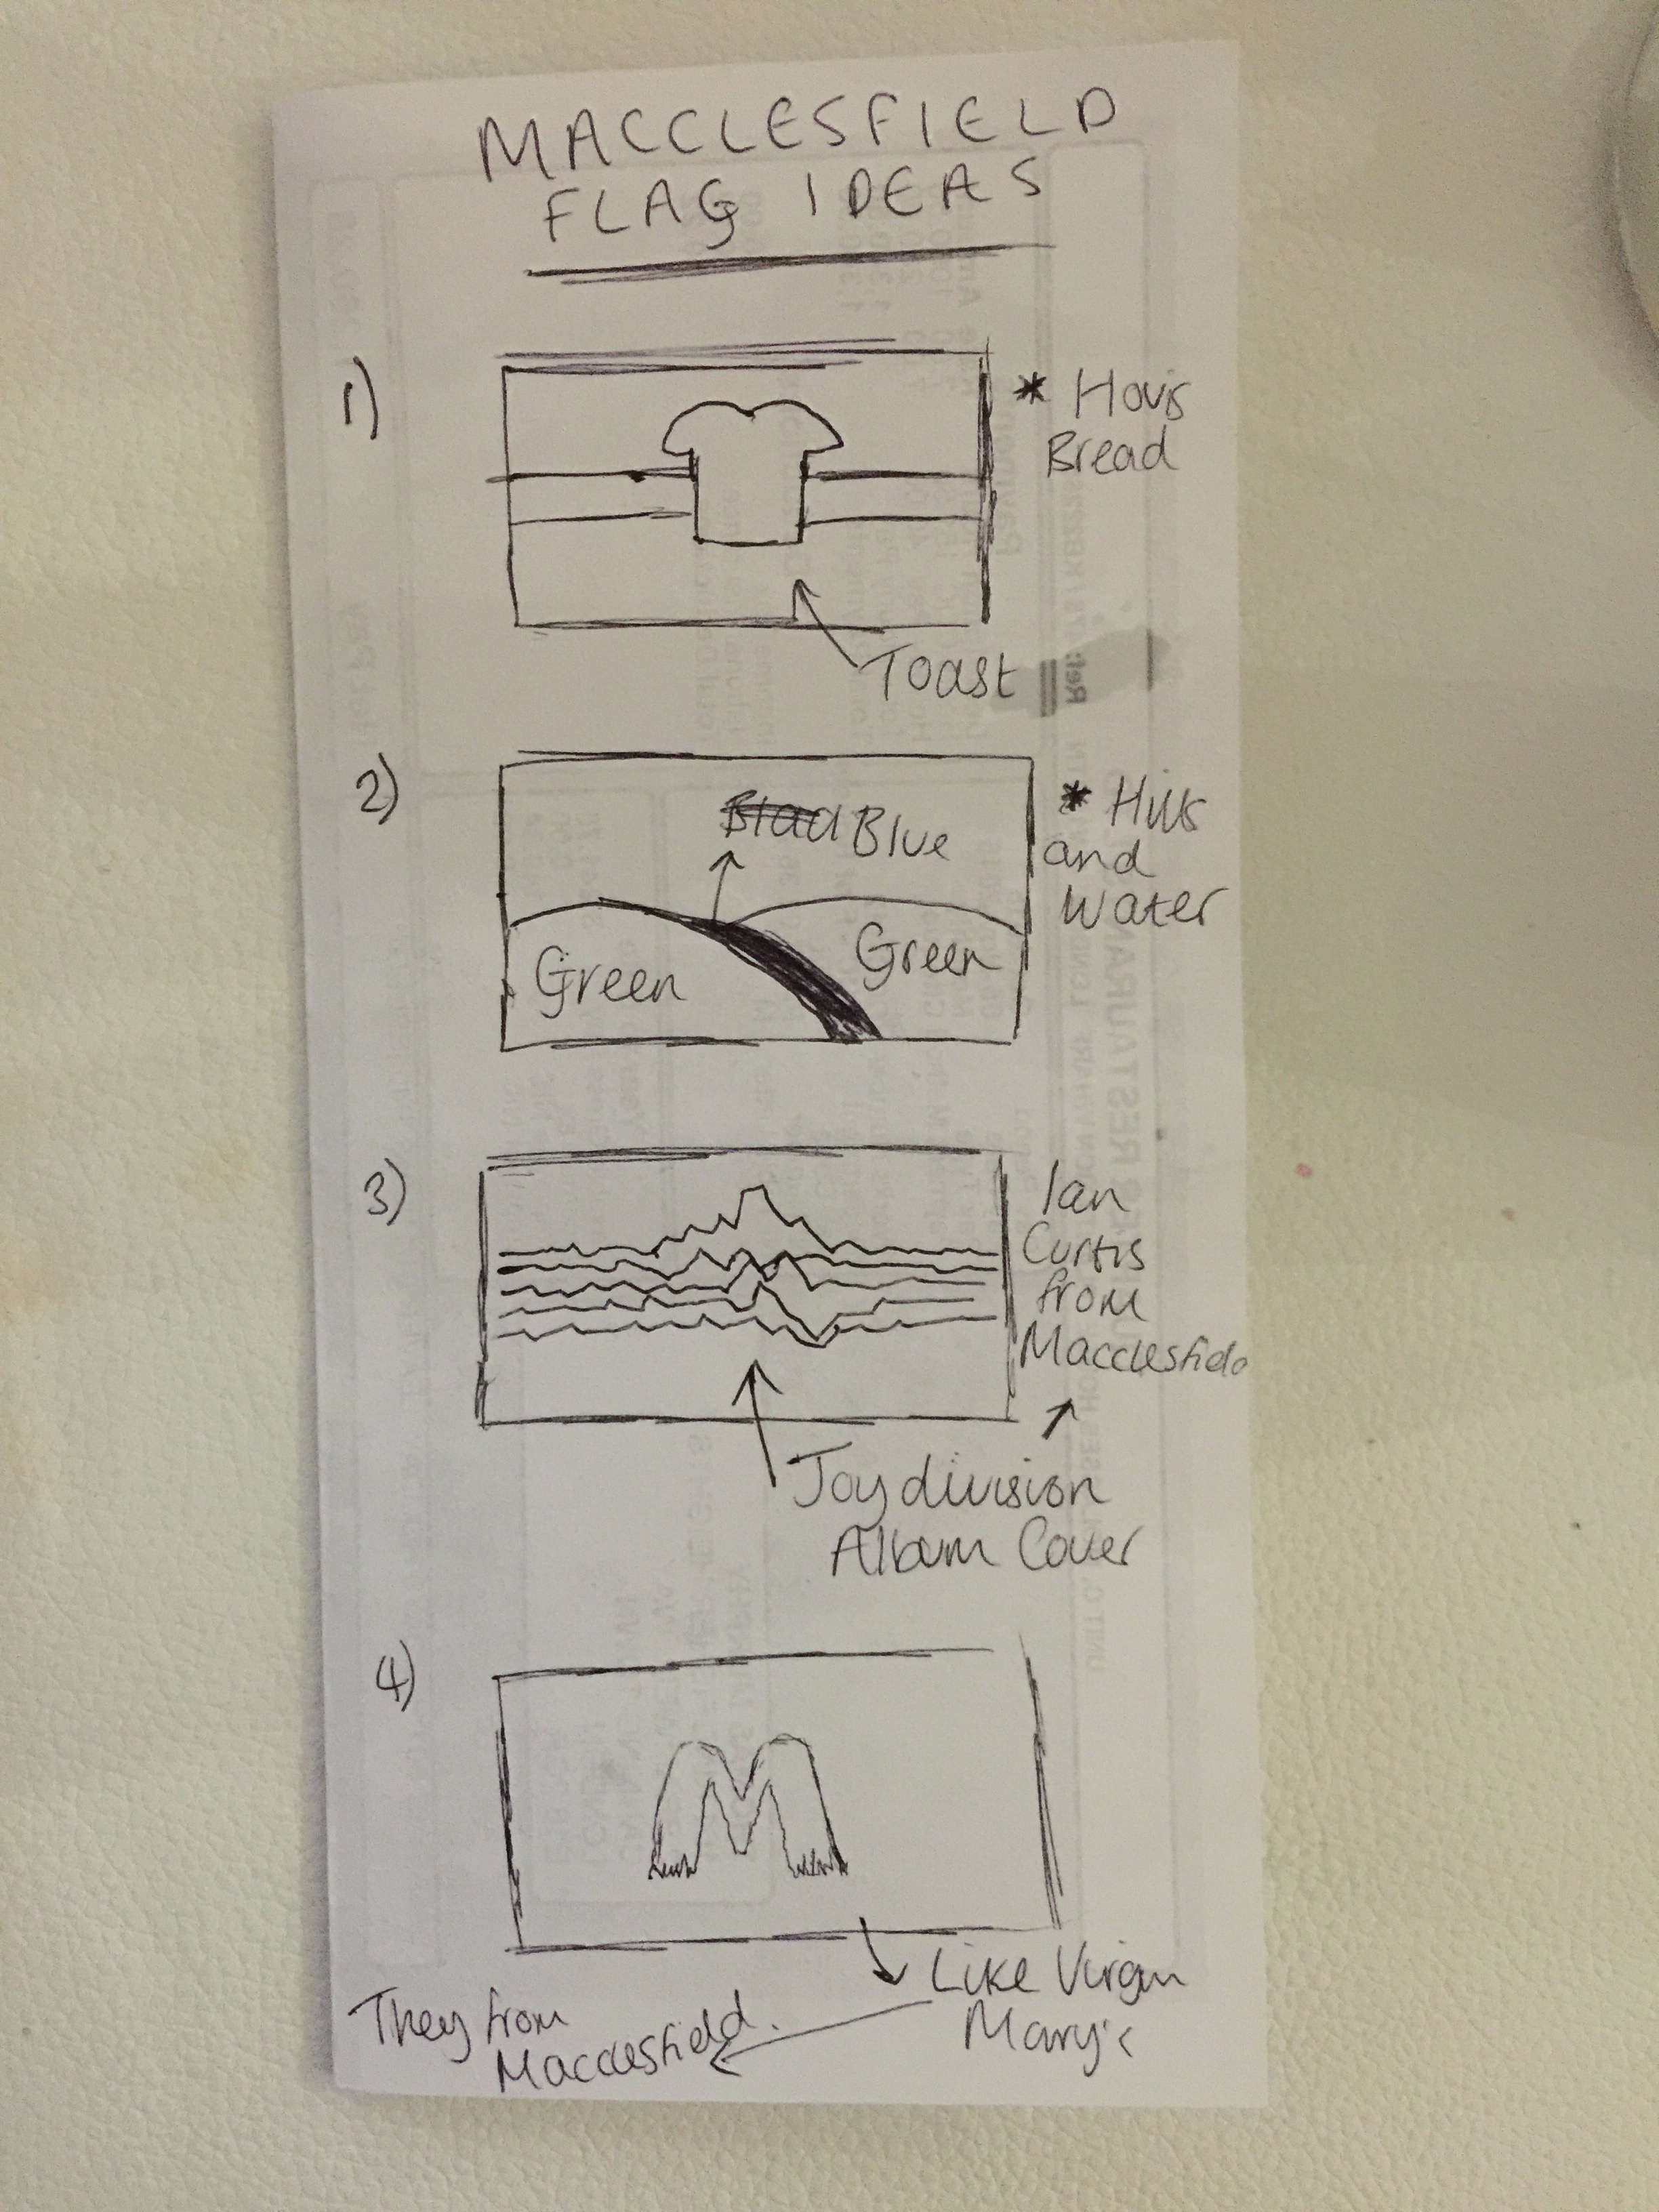 MACCLESFIELD
FLAG IDEAS
1)
* Hovis
Bread
Toast
2)
Blue
* Hills
and
Water
Green
Green
3)
Ian
Curtis
from
Macclesfield
Joy division
Album Cover
4)
M
Like Virgin
Mary's
They from
Macclesfield.